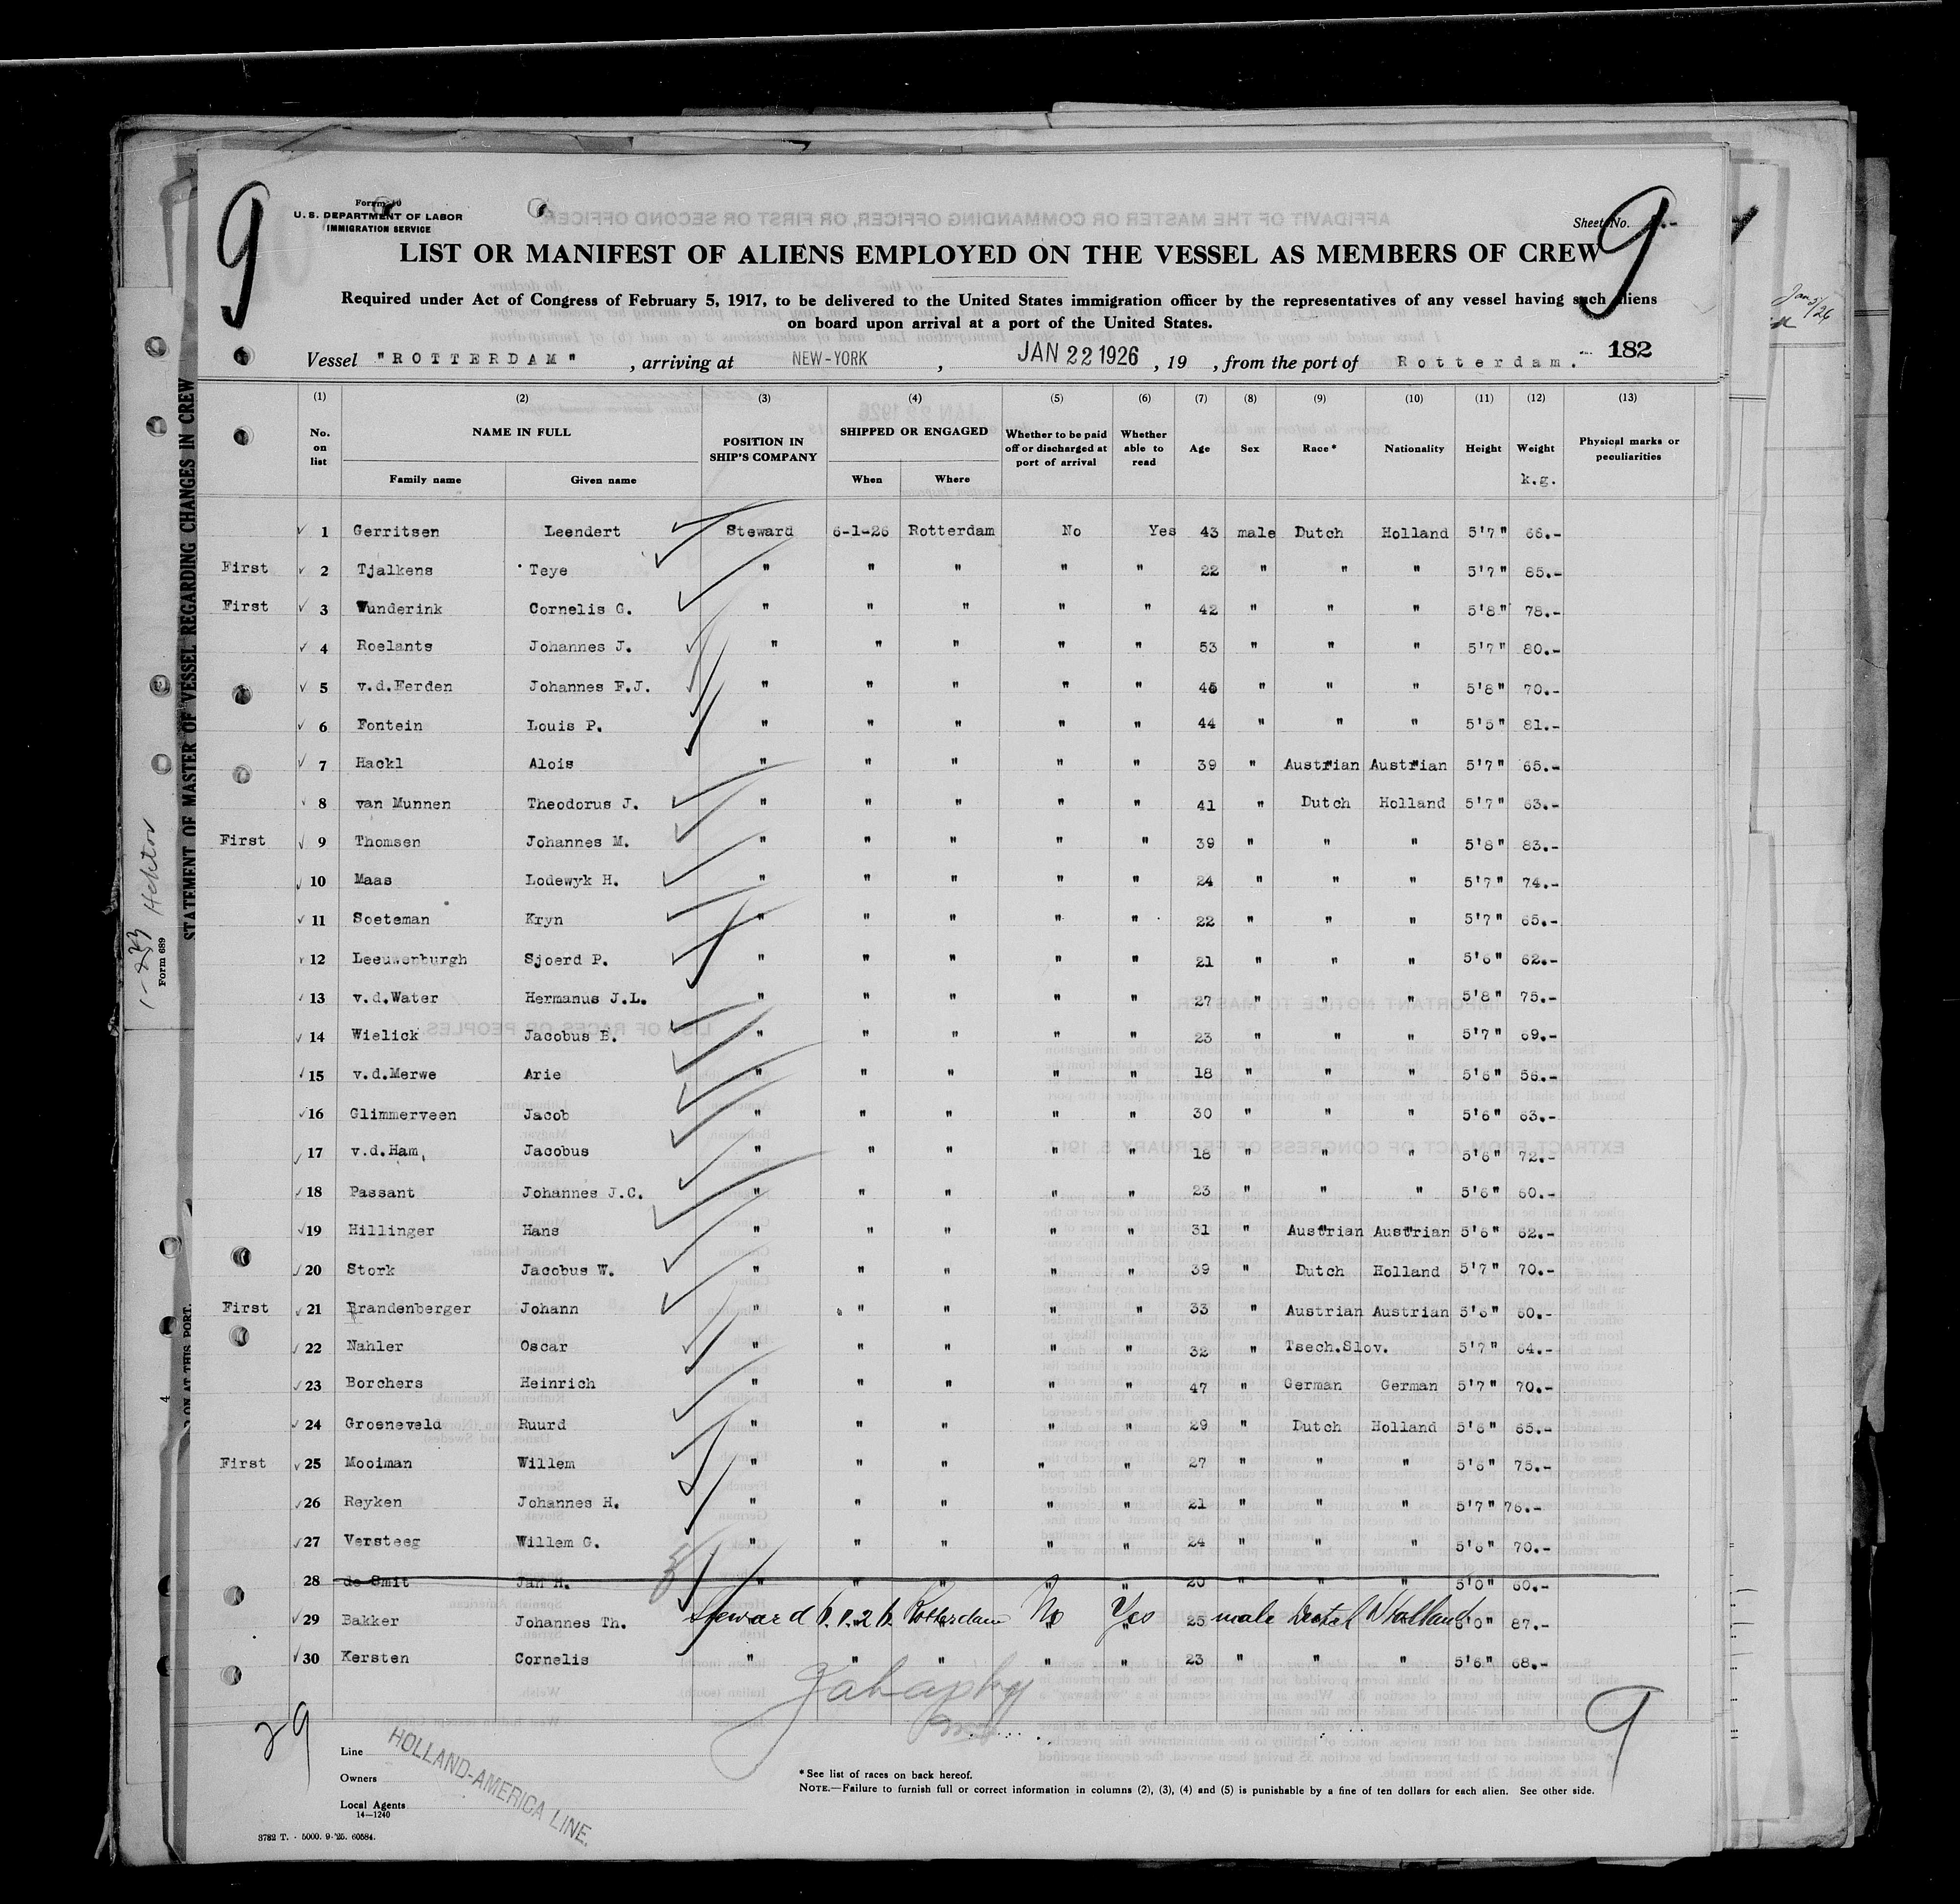 9
Form 689
STATEMENT OF MASTER OF VESSEL REGARDING CHANGES IN CREW
U. S. DEPARTMENT OF LABOR
IMMIGRATION SERVICE
Sheet No. 9
LIST OR MANIFEST OF ALIENS EMPLOYED ON THE VESSEL AS MEMBERS OF CREW
Required under Act of Congress of February 5, 1917, to be delivered to the United States immigration officer by the representatives of any vessel having such aliens
on board upon arrival at a port of the United States.
Vessel "ROTTERDAM", arriving at NEW-YORK, JAN 22 1926, 19 , from the port of Rotterdam. 182
(1) (2) (3) (4) (5) (6) (7) (8) (9) (10) (11) (12) (13)
No. on list NAME IN FULL Family name Given name POSITION IN SHIP'S COMPANY SHIPPED OR ENGAGED When Where Whether to be paid off or discharged at port of arrival Whether able to read Age Sex Race* Nationality Height Weight k.g. Physical marks or peculiarities
1 Gerritsen Leendert Steward 6-1-26 Rotterdam No Yes 43 male Dutch Holland 5'7" 66.-
First 2 Tjalkens Teye " " " " " 22 " " " 5'7" 85.-
First 3 Wunderink Cornelis G. " " " " " 42 " " " 5'8" 78.-
4 Roelants Johannes J. " " " " " 53 " " " 5'7" 80.-
5 v.d.Eerden Johannes F.J. " " " " " 45 " " " 5'8" 70.-
6 Fontein Louis P. " " " " " 44 " " " 5'5" 81.-
7 Hackl Alois " " " " " 39 " Austrian Austrian 5'7" 65.-
8 van Munnen Theodorus J. " " " " " 41 " Dutch Holland 5'7" 63.-
First 9 Thomsen Johannes M. " " " " " 39 " " " 5'8" 83.-
10 Maas Lodewyk H. " " " " " 24 " " " 5'7" 74.-
11 Soeteman Kryn " " " " " 22 " " " 5'7" 65.-
12 Leeuwenburgh Sjoerd P. " " " " " 21 " " " 5'6" 62.-
13 v.d.Water Hermanus J.L. " " " " " 27 " " " 5'8" 75.-
14 Wielick Jacobus B. " " " " " 23 " " " 5'7" 69.-
15 v.d.Merwe Arie " " " " " 18 " " " 5'6" 56.-
16 Glimmerveen Jacob " " " " " 30 " " " 5'6" 63.-
17 v.d.Ham Jacobus " " " " " 18 " " " 5'6" 72.-
18 Passant Johannes J.C. " " " " " 23 " " " 5'6" 60.-
19 Hillinger Hans " " " " " 31 " Austrian Austrian 5'6" 62.-
20 Stork Jacobus W. " " " " " 39 " Dutch Holland 5'7" 70.-
First 21 Brandenberger Johann " " " " " 33 " Austrian Austrian 5'6" 60.-
22 Nahler Oscar " " " " " 32 " Tsech.Slov. 5'7" 64.-
23 Borchers Heinrich " " " " " 47 " German German 5'7" 70.-
24 Groeneveld Ruurd " " " " " 29 " Dutch Holland 5'6" 65.-
First 25 Mooiman Willem " " " " " 27 " " " 5'6" 75.-
26 Reyken Johannes H. " " " " " 21 " " " 5'7" 76.-
27 Versteeg Willem G. " " " " " 24 " " " 5'6" 70.-
28 de Smit Jan H. " " " " " 20 " " " 5'0" 60.-
29 Bakker Johannes Th. Steward 6.1.26 Rotterdam No Yes 25 male Dutch Holland 6'0" 87.-
30 Kersten Cornelis " " " " " 23 " " " 5'6" 68.-
29
9
Line
Owners
Local Agents
HOLLAND-AMERICA LINE.
14—1240
* See list of races on back hereof.
NOTE.—Failure to furnish full or correct information in columns (2), (3), (4) and (5) is punishable by a fine of ten dollars for each alien. See other side.
3782 T. - 5000. 9-'25. 60584.